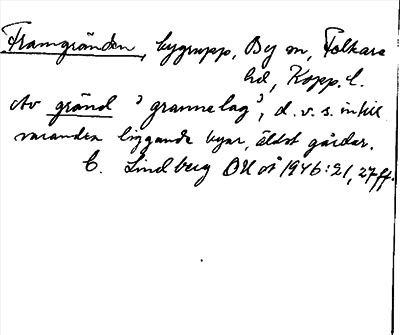 Framgränden, bygrupp, By sn, Folkare
hd, Kopp. l.
Av gränd 'grannelag', d.v.s. intill
varandra liggande byar, äldst gårdar.
C. Lindberg DHÅ 1946:21, 27ff.